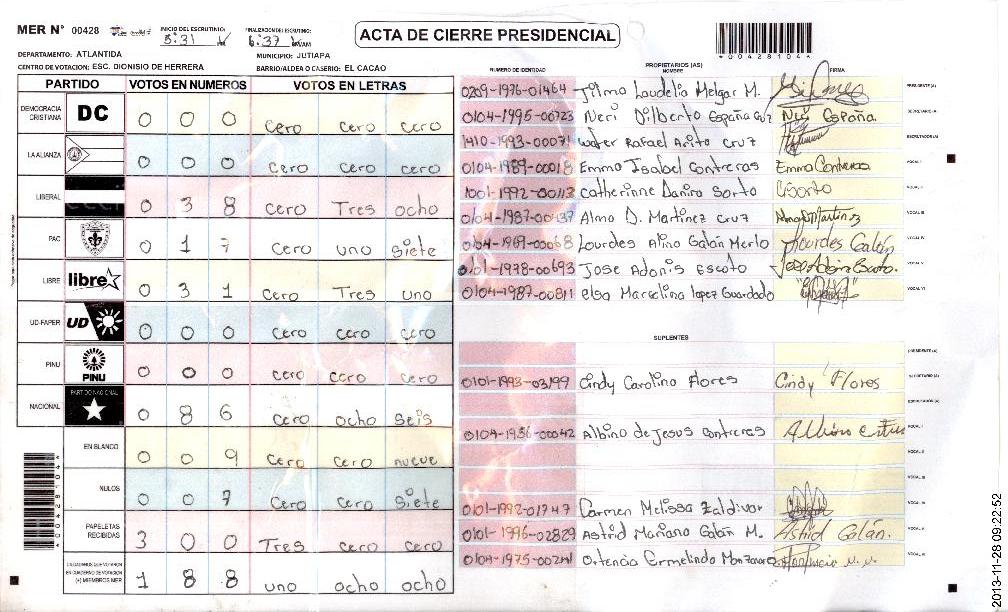 MER N° 00428
INICIO DEL ESCRUTINIO:
FINALIZACION DEL ESCRUTINIO:
6:37
ACTA DE CIERRE PRESIDENCIAL
*00428104*
DEPARTAMENTO: ATLANTIDA
MUNICIPIO: JUTIAPA
CENTRO DE VOTACION: ESC. DIONISIO DE HERRERA
BARRIO/ALDEA O CASERIO: EL CACAO
PARTIDO VOTOS EN NUMEROS VOTOS EN LETRAS
DEMOCRACIA CRISTIANA DC 0 0 0 cero cero cero
LA ALIANZA 0 0 0 cero cero cero
LIBERAL 0 3 8 cero Tres ocho
PAC 0 1 7 cero uno siete
LIBRE libre 0 3 1 cero Tres uno
UD-FAPER UD 0 0 0 cero cero cero
PINU PINU 0 0 0 cero cero cero
NACIONAL PARTIDO NACIONAL 0 8 6 cero ocho seis
EN BLANCO 0 0 9 cero cero nueve
NULOS 0 0 7 cero cero siete
PAPELETAS RECIBIDAS 3 0 0 Tres cero cero
CIUDADANOS QUE VOTARON EN CUADERNO DE VOTACION (+) MIEMBROS MER 1 8 8 uno ocho ocho
*00428104*
NUMERO DE IDENTIDAD PROPIETARIOS (AS) NOMBRE FIRMA
0209-1976-01464 Laudelio Melgar M. PRESIDENTE(A)
0104-1995-00723 Neri Dilberto España Neri España SECRETARIO(A)
1410-1993-00071 Rafael Cruz ESCRUTADOR(A)
0104-1989-00018 Emma Isabel Contreras Emma Contreras VOCAL I
1001-1992-00113 Catherinne Sorto CSorto VOCAL II
0104-1987-00437 Alma D. Martinez Cruz VOCAL III
0104-1969-00068 Lourdes Galán Merlo Lourdes Galán VOCAL IV
0101-1978-00693 Jose Adonis Escoto VOCAL V
0104-1987-00811 elsa Marcelina lopez Guardado VOCAL VI
SUPLENTES
PRESIDENTE (A)
0101-1993-03199 Cindy Carolina Flores Cindy Flores SECRETARIO (A)
ESCRUTADOR (A)
0104-1956-00042 Albino de Jesus Contreras VOCAL I
VOCAL II
0101-1992-01747 Carmen Melissa Zaldivar
0101-1996-02829 Astrid Mariana Galán M. Astrid Galán.
0104-1975-00241 Ortencia Ermelinda
2013-11-28 09:22:52